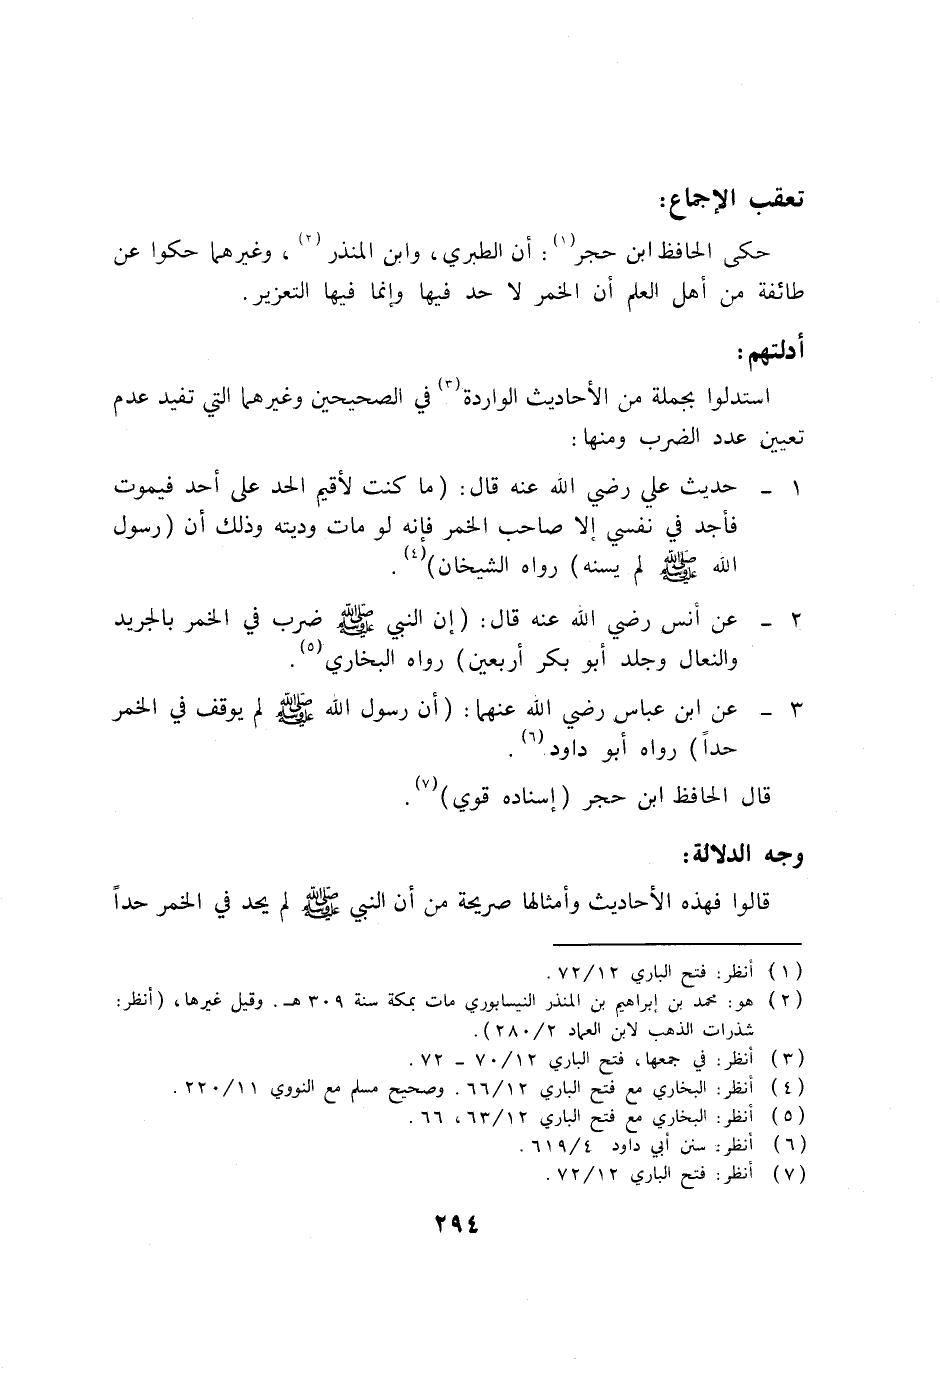 تعقب الإجماع:
حكى الحافظ ابن حجر(١): أن الطبري، وابن المنذر(٢)، وغيرهما حكوا عن
طائفة من أهل العلم أن الخمر لا حد فيها وإنما فيها التعزير.
أدلتهم:
استدلوا بجملة من الأحاديث الواردة(٣) في الصحيحين وغيرهما التي تفيد عدم
تعيين عدد الضرب ومنها:
١ - حديث علي رضي الله عنه قال: (ما كنت لأقيم الحد على أحد فيموت
فأجد في نفسي إلا صاحب الخمر فإنه لو مات وديته وذلك أن (رسول
الله ﷺ لم يسنه) رواه الشيخان)(٤).
٢ - عن أنس رضي الله عنه قال: (إن النبي ﷺ ضرب في الخمر بالجريد
والنعال وجلد أبو بكر أربعين) رواه البخاري(٥).
٣ - عن ابن عباس رضي الله عنهما: (أن رسول الله ﷺ لم يوقف في الخمر
حداً) رواه أبو داود(٦).
قال الحافظ ابن حجر (إسناده قوي)(٧).
وجه الدلالة:
قالوا فهذه الأحاديث وأمثالها صريحة من أن النبي ﷺ لم يحد في الخمر حداً
(١) أنظر: فتح الباري ٧٢/١٢.
(٢) هو: محمد بن إبراهيم بن المنذر النيسابوري مات بمكة سنة ٣٠٩ هـ. وقيل غيرها، (أنظر:
شذرات الذهب لابن العماد ٢٨٠/٢).
(٣) أنظر: في جمعها، فتح الباري ٧٠/١٢ - ٧٢.
(٤) أنظر: البخاري مع فتح الباري ٦٦/١٢. وصحيح مسلم مع النووي ٢٢٠/١١.
(٥) أنظر: البخاري مع فتح الباري ٦٣/١٢، ٦٦.
(٦) أنظر: سنن أبي داود ٦١٩/٤.
(٧) أنظر: فتح الباري ٧٢/١٢.
٢٩٤